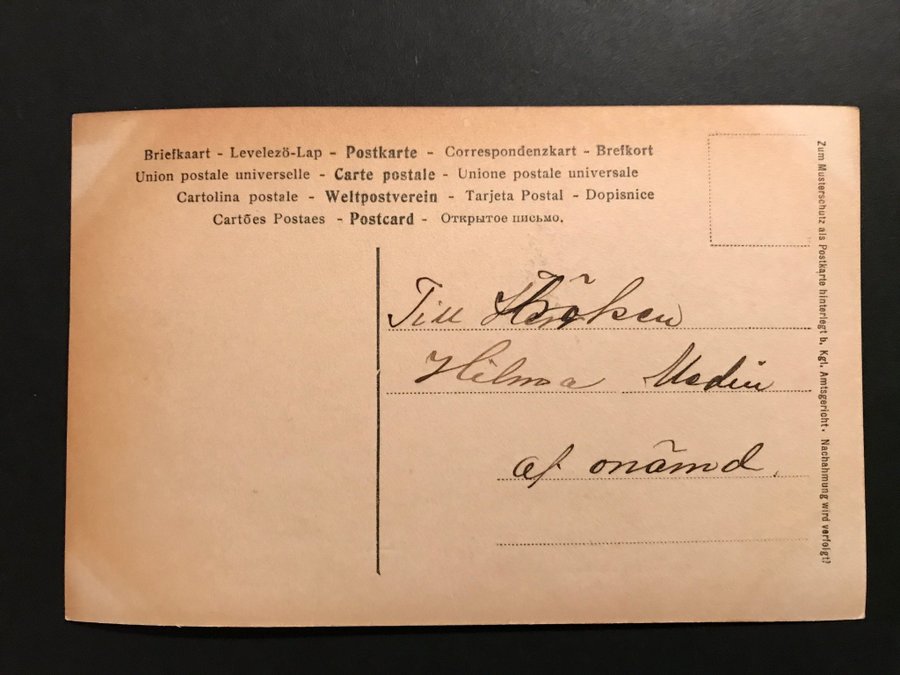 Briefkaart - Levelezö-Lap - Postkarte - Correspondenzkart - Brefkort
Union postale universelle - Carte postale - Unione postale universale
Cartolina postale - Weltpostverein - Tarjeta Postal - Dopisnice
Cartões Postaes - Postcard - Открытое письмо.
Till Fröken
Hilma Medin
af onämd.
Zum Musterschutz als Postkarte hinterlegt b. Kgl. Amtsgericht. Nachahmung wird verfolgt?